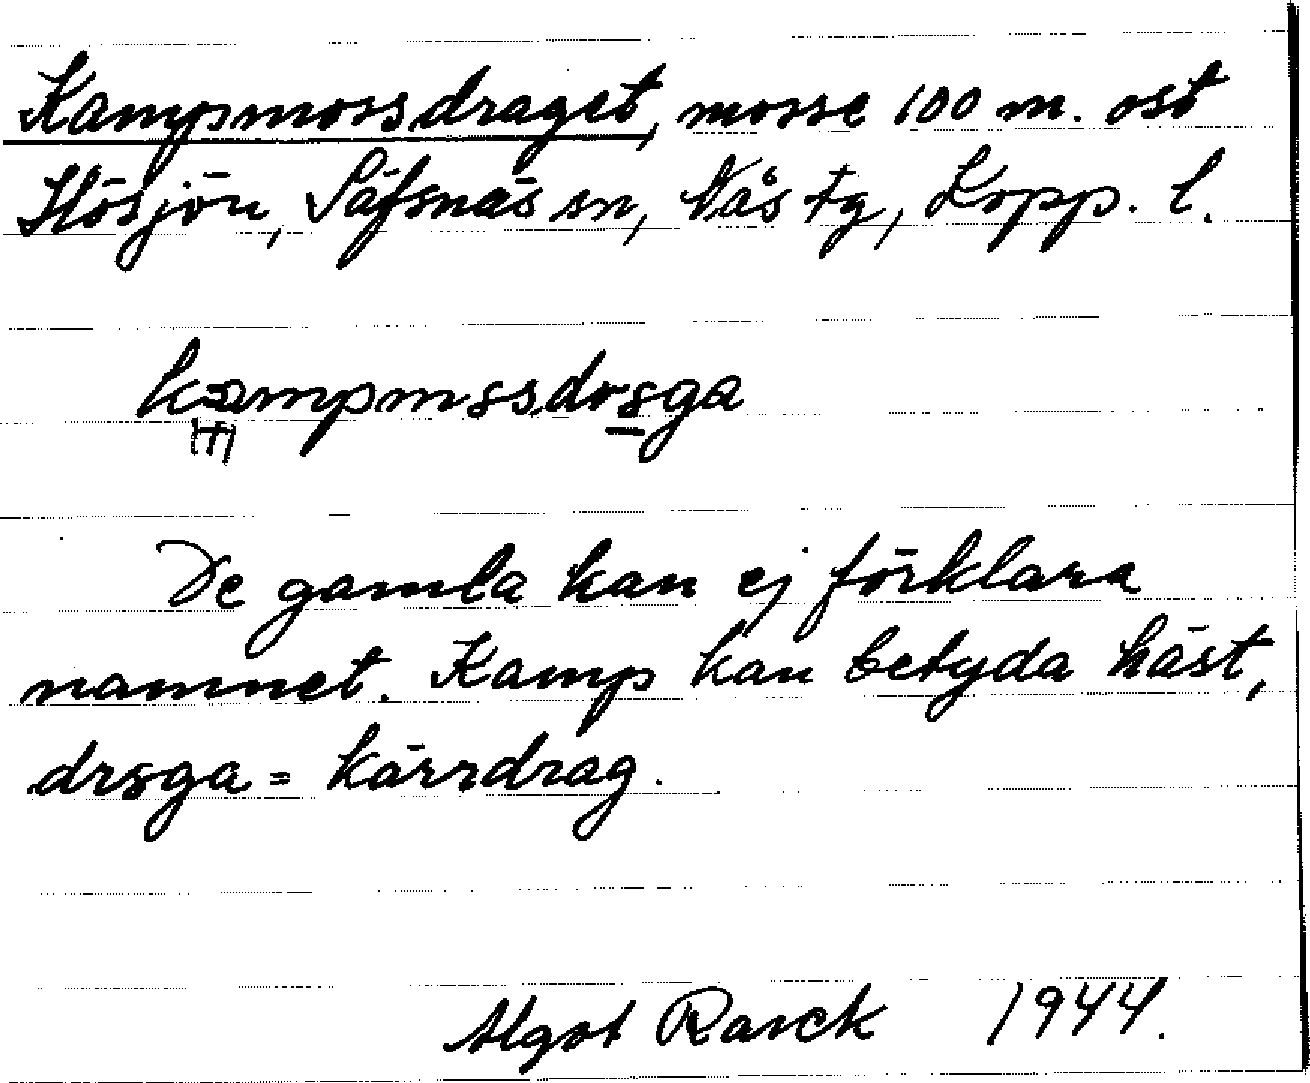 Kampmossdraget, mosse 100 m. ost
Hösjön, Säfsnäs sn, Nås tg, Kopp. l.
De gamla kan ej förklara
namnet. Kamp kan betyda häst,
drsga = kärrdrag.
Algot Rarck 1944.